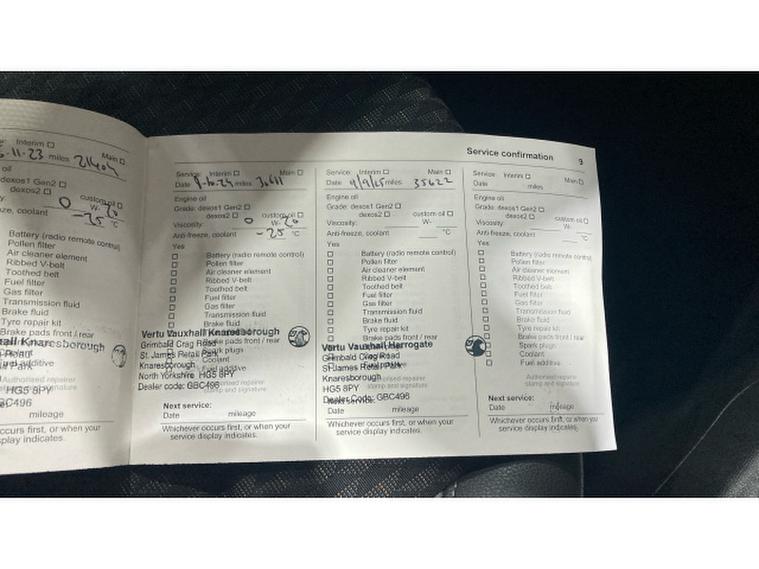 Service confirmation 9
Interim □
Main □
11-23 miles 21404
oil
dexos1 Gen2 □
dexos2 □
custom oil □
0 W- 20
coolant -25 °C
Battery (radio remote control)
Pollen filter
Air cleaner element
Ribbed V-belt
Toothed belt
Fuel filter
Gas filter
Transmission fluid
Brake fluid
Tyre repair kit
Brake pads front / rear
Knaresborough
Retail Park
HG5 8PY
GBC496
Authorised repairer
stamp and signature
mileage
occurs first, or when your
display indicates.
Service: Interim □ Main □
Date 8-10-24 miles 30611
Engine oil
Grade: dexos1 Gen2 □
dexos2 □ custom oil □
Viscosity: 0 W- 20
Anti-freeze, coolant -25 °C
Yes
□ Battery (radio remote control)
□ Pollen filter
□ Air cleaner element
□ Ribbed V-belt
□ Toothed belt
□ Fuel filter
□ Gas filter
□ Transmission fluid
□ Brake fluid
Vertu Vauxhall Knaresborough
Grimbald Crag Road
St. James Retail Park
Knaresborough
North Yorkshire HG5 8PY
Dealer code: GBC496
Spark plugs
Coolant
Fuel additive
Authorised repairer
stamp and signature
Next service:
Date mileage
Whichever occurs first, or when your
service display indicates.
Service: Interim □ Main □
Date 9/9/25 miles 35622
Engine oil
Grade: dexos1 Gen2 □
dexos2 □ custom oil □
Viscosity: W-
Anti-freeze, coolant °C
Yes
□ Battery (radio remote control)
□ Pollen filter
□ Air cleaner element
□ Ribbed V-belt
□ Toothed belt
□ Fuel filter
□ Gas filter
□ Transmission fluid
□ Brake fluid
□ Tyre repair kit
□ Brake pads front / rear
Vertu Vauxhall Harrogate
Grimbald Crag Road
St James Retail Park
Knaresborough
HG5 8PY
Dealer Code: GBC496
Coolant
Fuel additive
Authorised repairer
stamp and signature
Next service:
Date mileage
Whichever occurs first, or when your
service display indicates.
Service: Interim □ Main □
Date miles
Engine oil
Grade: dexos1 Gen2 □
dexos2 □ custom oil □
Viscosity: W-
Anti-freeze, coolant °C
Yes
□ Battery (radio remote control)
□ Pollen filter
□ Air cleaner element
□ Ribbed V-belt
□ Toothed belt
□ Fuel filter
□ Gas filter
□ Transmission fluid
□ Brake fluid
□ Tyre repair kit
□ Brake pads front / rear
□ Spark plugs
□ Coolant
□ Fuel additive
Authorised repairer
stamp and signature
Next service:
Date mileage
Whichever occurs first, or when your
service display indicates.